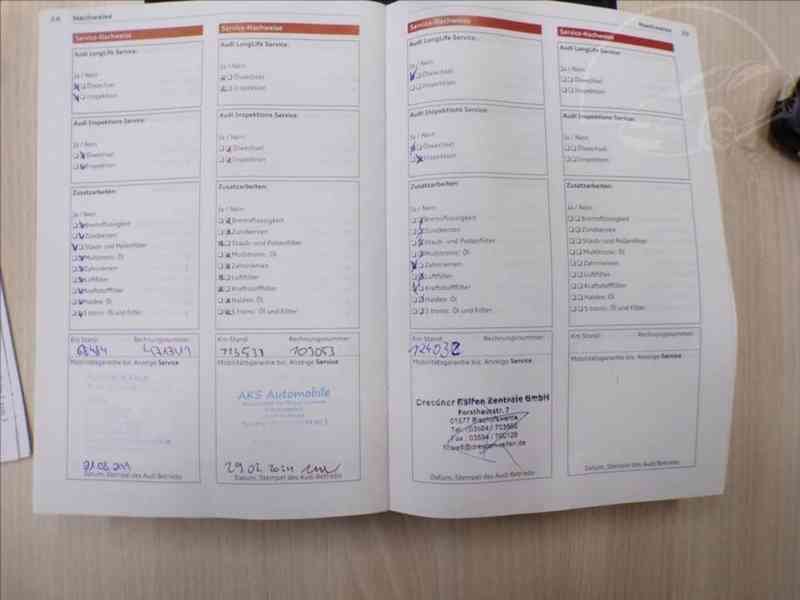 Nachweise
Service-Nachweise
Audi LongLife Service:
Ja / Nein
Ölwechsel
Inspektion
Audi Inspektions Service:
Ja / Nein
Ölwechsel
Inspektion
Zusatzarbeiten:
Ja / Nein
Bremsflüssigkeit
Zündkerzen
Staub- und Pollenfilter
Multitronic: Öl
Zahnriemen
Luftfilter
Kraftstofffilter
Haldex: Öl
S tronic: Öl und Filter
Km Stand: Rechnungsnummer:
Mobilitätsgarantie bis: Anzeige Service
Datum, Stempel des Audi Betriebs
Service-Nachweise
Audi LongLife Service:
Ja / Nein
Ölwechsel
Inspektion
Audi Inspektions Service:
Ja / Nein
Ölwechsel
Inspektion
Zusatzarbeiten:
Ja / Nein
Bremsflüssigkeit
Zündkerzen
Staub- und Pollenfilter
Multitronic: Öl
Zahnriemen
Luftfilter
Kraftstofffilter
Haldex: Öl
S tronic: Öl und Filter
Km Stand: Rechnungsnummer:
103053
Mobilitätsgarantie bis: Anzeige Service
AKS Automobile
Datum, Stempel des Audi Betriebs
Nachweise
Service-Nachweise
Audi LongLife Service:
Ja / Nein
Ölwechsel
Inspektion
Audi Inspektions Service:
Ja / Nein
Ölwechsel
Inspektion
Zusatzarbeiten:
Ja / Nein
Bremsflüssigkeit
Zündkerzen
Staub- und Pollenfilter
Multitronic: Öl
Zahnriemen
Luftfilter
Kraftstofffilter
Haldex: Öl
S tronic: Öl und Filter
Km Stand: Rechnungsnummer:
124032
Mobilitätsgarantie bis: Anzeige Service
Dresdner Reifen Zentrale GmbH
Forstheitstr. 7
01877 Bischofswerda
Datum, Stempel des Audi Betriebs
Service-Nachweise
Audi LongLife Service:
Ja / Nein
Ölwechsel
Inspektion
Audi Inspektions Service:
Ja / Nein
Ölwechsel
Inspektion
Zusatzarbeiten:
Ja / Nein
Bremsflüssigkeit
Zündkerzen
Staub- und Pollenfilter
Multitronic: Öl
Zahnriemen
Luftfilter
Kraftstofffilter
Haldex: Öl
S tronic: Öl und Filter
Km Stand: Rechnungsnummer:
Mobilitätsgarantie bis: Anzeige Service
Datum, Stempel des Audi Betriebs